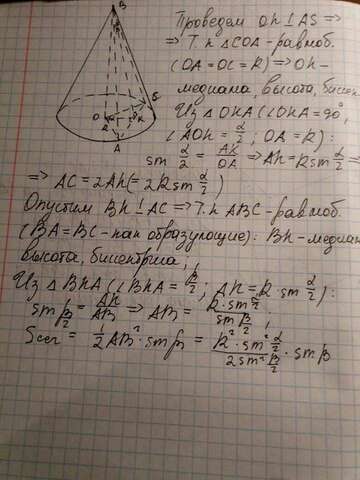 Проведем Oh⊥AS ⇒
⇒ Т.к △COA-равноб.
(OA=OC=R) ⇒ Oh-
медиана, высота, бисек
Из △OhA (∠OhA=90°,
∠AOh=α/2; OA=R):
sin α/2 = AK/OA ⇒ Ah=Rsin α/2 ⇒
⇒ AC=2Ah(=2Rsin α/2)
Опустим Bh⊥AC ⇒ Т.к ABC-равноб.
(BA=BC-как образующие): Bh-медиан
высота, биссектриса;
Из △BhA (∠BhA=β/2; Ah=R·sin α/2):
sin β/2 = Ah/AB ⇒ AB = R·sin α/2 / sin β/2;
Sсеч = 1/2 AB²·sinβ = R²·sin² α/2 / 2sin² β/2 · sinβ
B
C
O
K
R
A